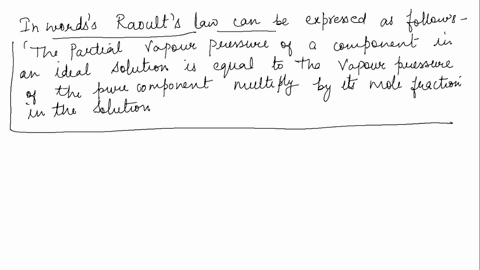 In words's Raoult's law can be expressed as follows -
'The Partial Vapour pressure of a component in
an ideal solution is equal to the vapour pressure
of the pure component multiply by its mole fraction
in the solution